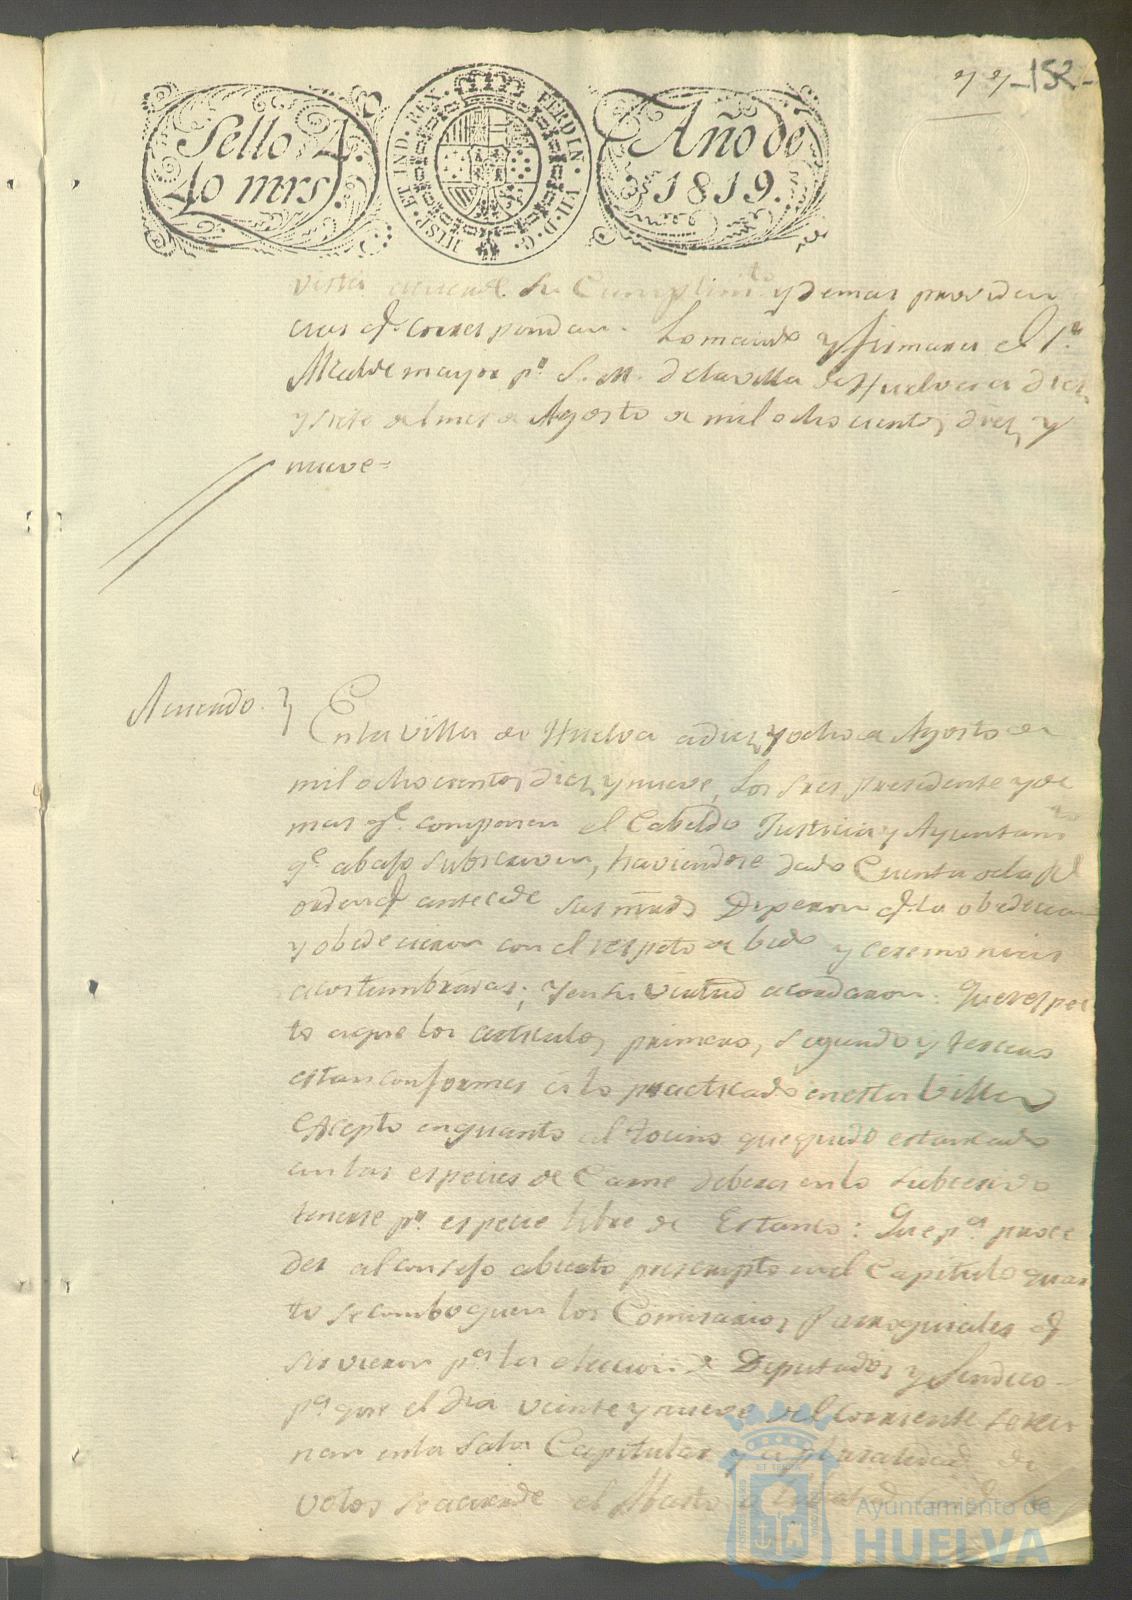 152
Sello 4.
40 mrs.
HISP. ET IND. REX. FERDIN. VII. D. G.
Año de
1819.
vista acuerde su Cumplimto. y demas providen
cias q.e correspondan. Lo mando y firmara el Sr.
Alcalde mayor pr. S. M. de la villa de Huelva a diez
y siete del mes de Agosto de mil ochocientos diez y
nueve=
Acuerdo.
En la Villa de Huelva a diez y ocho de Agosto de
mil ochocientos diez y nueve, Los Sres. Presidente y de
mas q.e componen el Cabildo Justicia y Ayuntamto
q.e abajo subscriven, haviendose dado Cuenta de la Rl
orden q.e antecede sus mrds. Digeron q.e la obedecian
y obedecieron con el respeto debido y ceremonias
acostumbradas; y en su virtud acordaron: Que respec
to a que los articulos, primero, segundo y tercero
estan conformes a lo practicado en esta Villa
Escepto en quanto al tocino que quedo estancado
en las especies de Carne debera en lo subcesivo
tenerse pr. especie libre de Estanco: Que pa. proce
der al consejo abierto prescripto en el Capitulo quar
to se convoquen los Comisarios Parroquiales q.e
sirvieron pa. la eleccion de Diputados y Sindico
pa. que el dia veinte y nueve del corriente se reu
nan en la Sala Capitular y a pluralidad de
votos se acuerde el
Ayuntamiento de
HUELVA